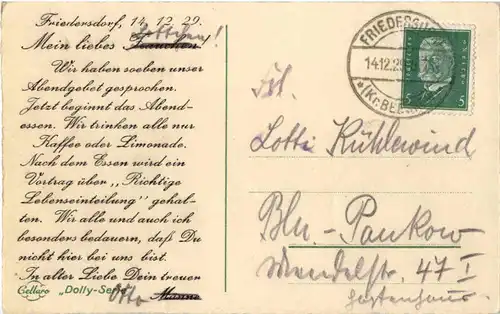 Friedersdorf, 14. 12. 29.
Lottchen!
Mein liebes Frauchen
Wir haben soeben unser
Abendgebet gesprochen.
Jetzt beginnt das Abend-
essen. Wir trinken alle nur
Kaffee oder Limonade.
Nach dem Essen wird ein
Vortrag über „Richtige
Lebenseinteilung" gehal-
ten. Wir alle und auch ich
besonders bedauern, daß Du
nicht hier bei uns bist.
In alter Liebe Dein treuer
Otto
Cellaro „Dolly-Serie"
FRIEDERSD
14.12.29
5 5
Frl.
Lotti Kühlewind
Bln-Pankow
Mendelstr. 47 I
Gartenhaus